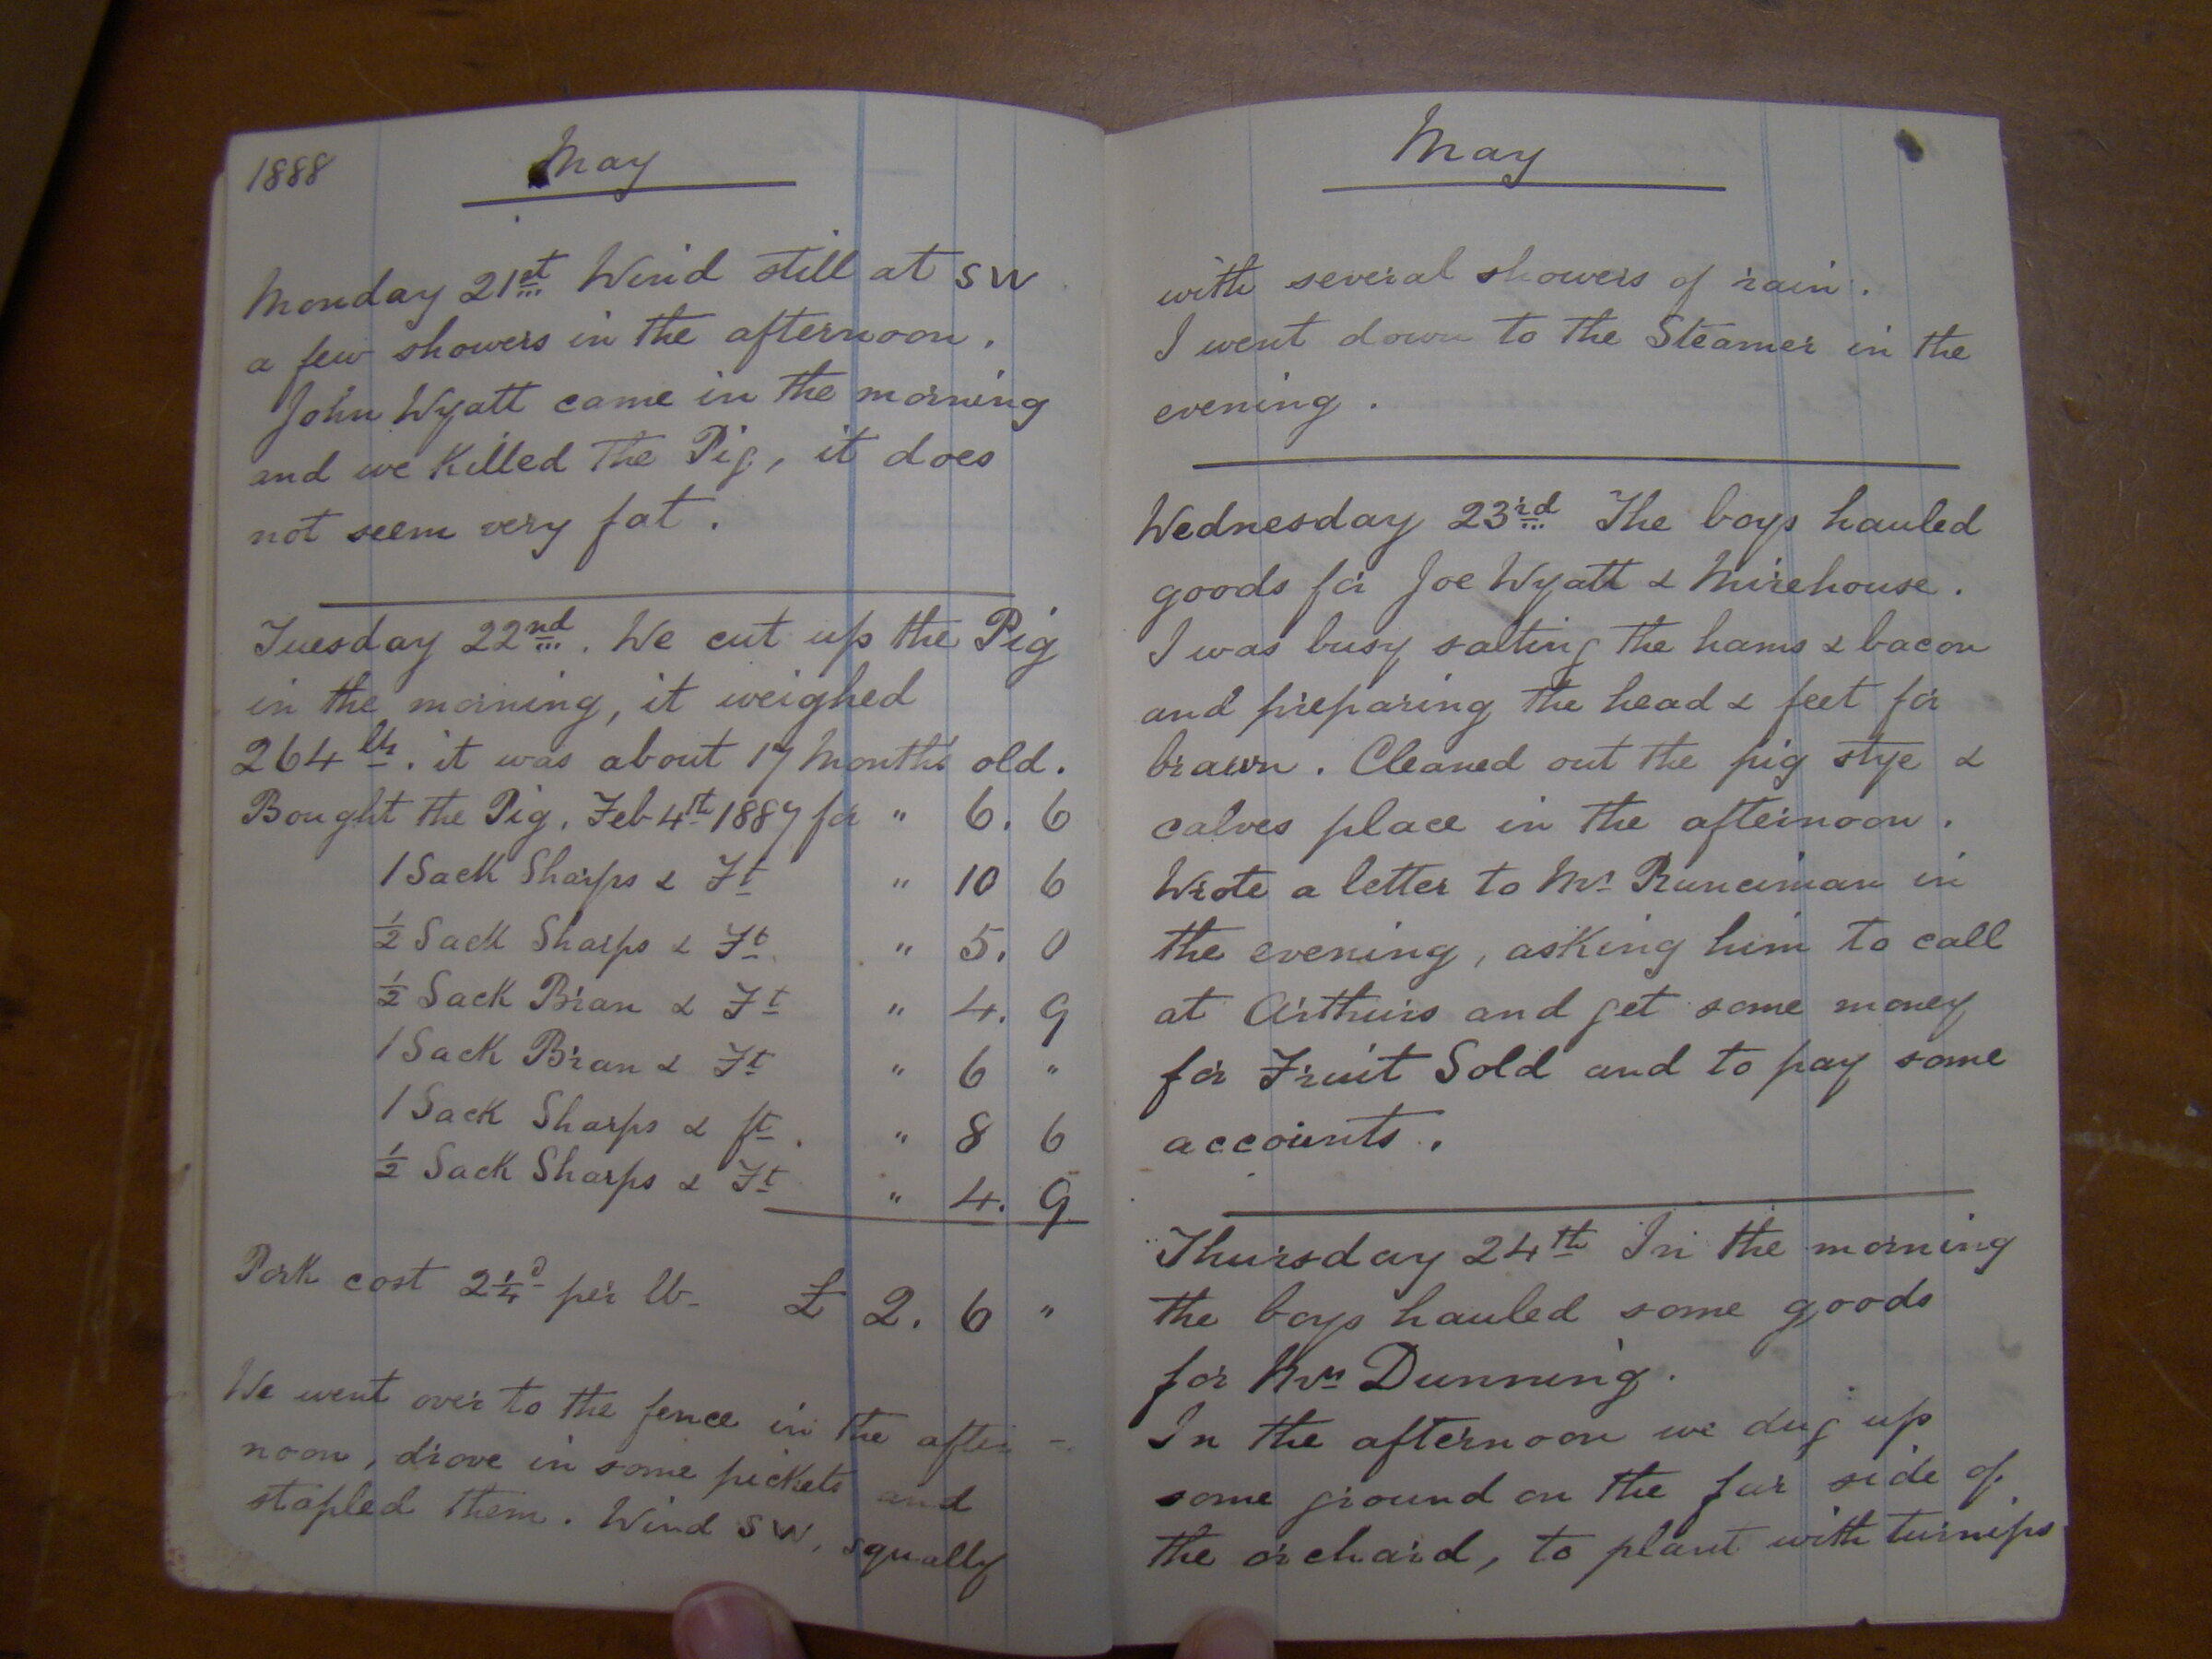 1888 May
Monday 21st Wind still at SW
a few showers in the afternoon.
John Wyatt came in the morning
and we Killed the Pig, it does
not seem very fat.
Tuesday 22nd. We cut up the Pig
in the morning, it weighed
264 lb. it was about 17 Months old.
Bought the Pig, Feb 4th 1887 for " 6. 6
1 Sack Sharps & Ft " 10 6
½ Sack Sharps & Ft " 5. 0
½ Sack Bran & Ft " 4. 9
1 Sack Bran & Ft " 6 "
1 Sack Sharps & ft. " 8 6
½ Sack Sharps & Ft " 4. 9
Pork cost 2¼d per lb- £ 2. 6 "
We went over to the fence in the after-
noon, drove in some pickets and
stapled them. Wind SW, squally
May
with several showers of rain.
I went down to the Steamer in the
evening.
Wednesday 23rd The boys hauled
goods for Joe Wyatt & Mirehouse.
I was busy salting the hams & bacon
and preparing the head & feet for
brawn. Cleaned out the pig stye &
calves place in the afternoon.
Wrote a letter to Mr Runciman in
the evening, asking him to call
at Arthurs and get some money
for Fruit Sold and to pay some
accounts.
Thursday 24th In the morning
the boys hauled some goods
for Mrs Dunning.
In the afternoon we dug up
some ground on the far side of
the orchard, to plant with turnips